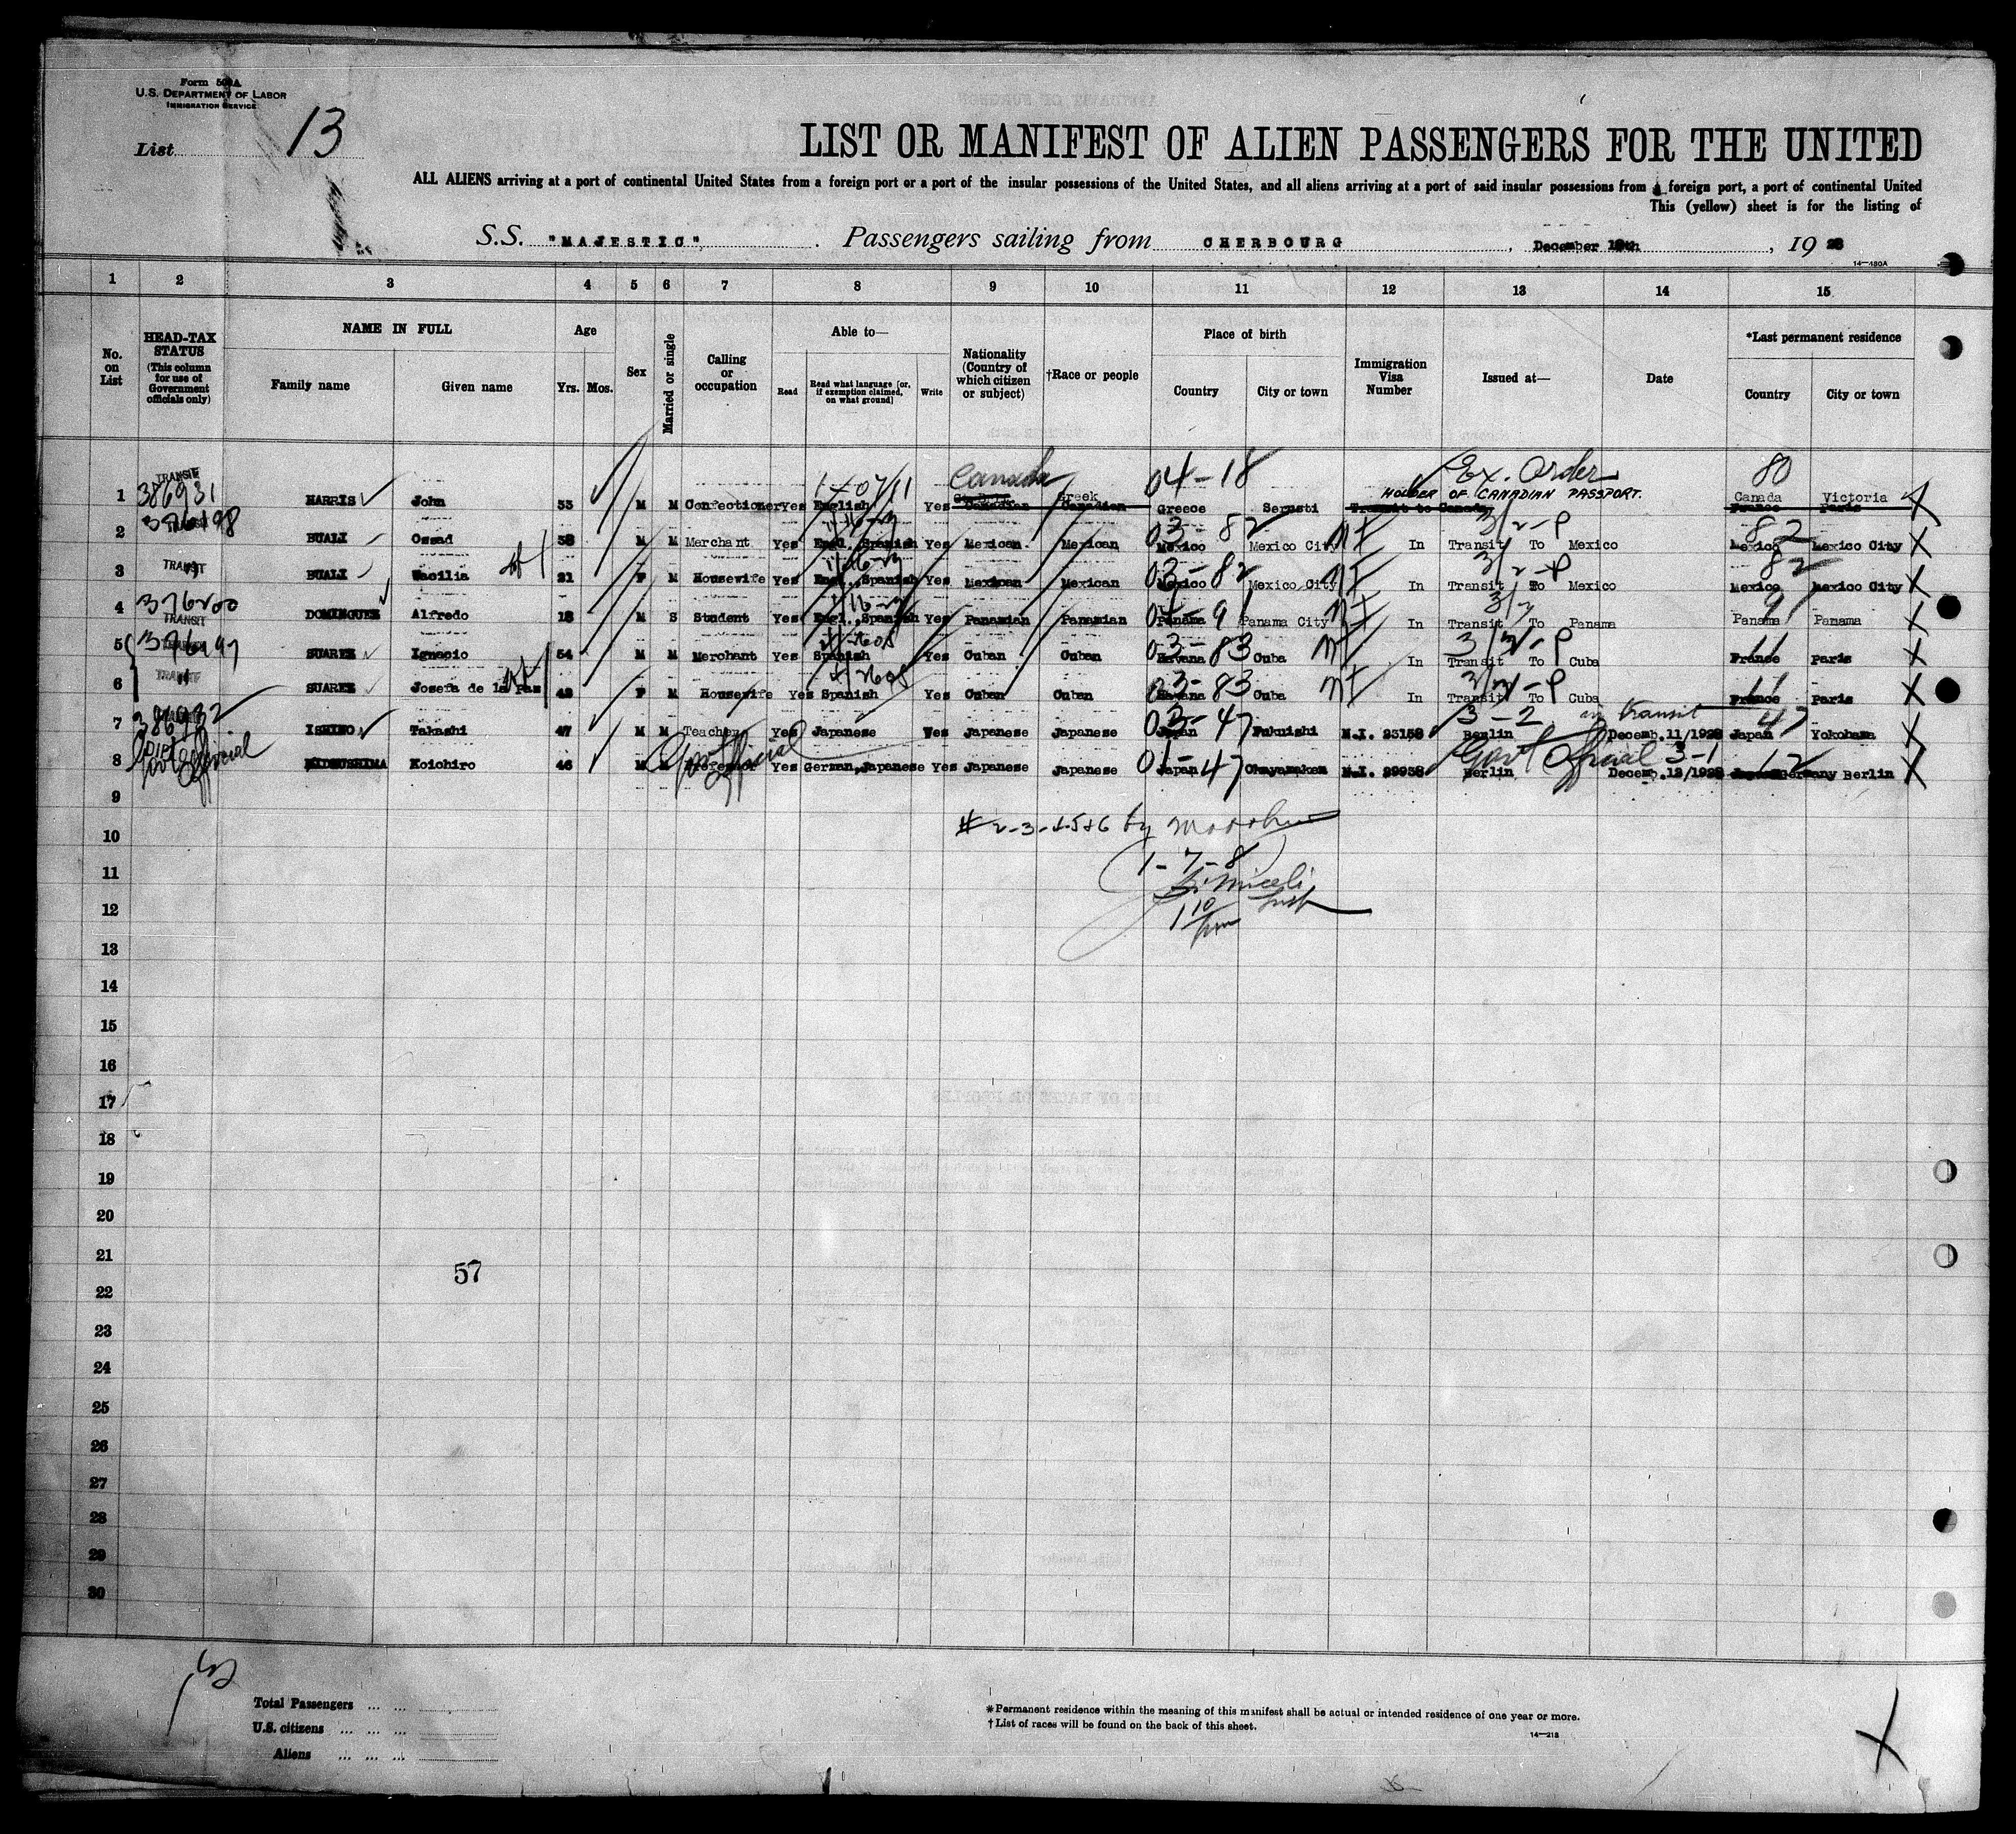 Form 500A
U.S. DEPARTMENT OF LABOR
IMMIGRATION SERVICE
List 13
LIST OR MANIFEST OF ALIEN PASSENGERS FOR THE UNITED
ALL ALIENS arriving at a port of continental United States from a foreign port or a port of the insular possessions of the United States, and all aliens arriving at a port of said insular possessions from a foreign port, a port of continental United
This (yellow) sheet is for the listing of
S.S. "MAJESTIC", Passengers sailing from CHERBOURG, December 19th, 1928
14—480A
1 2 3 4 5 6 7 8 9 10 11 12 13 14 15
No. on List
HEAD-TAX STATUS (This column for use of Government officials only)
NAME IN FULL
Family name
Given name
Age
Yrs. Mos.
Sex
Married or single
Calling or occupation
Able to—
Read
Read what language [or, if exemption claimed, on what ground]
Write
Nationality (Country of which citizen or subject)
†Race or people
Place of birth
Country
City or town
Immigration Visa Number
Issued at—
Date
*Last permanent residence
Country
City or town
Canada 04-18 Ex. Order 80
1 TRANSIT 386931 HARRIS John 53 M M Confectioner Yes English Yes Canadian Greek Canadian Greece Serusti HOLDER OF CANADIAN PASSPORT. Transit to Canada Canada Victoria France Paris
2 376198 TRANSIT BUALI Ossad 38 M M Merchant Yes Engl., Spanish Yes Mexican Mexican Mexico 03-82 Mexico City In Transit To Mexico 82 Mexico Mexico City
3 TRANSIT BUALI Wacilia 21 F M Housewife Yes Engl., Spanish Yes Mexican Mexican Mexico 03-82 Mexico City In Transit To Mexico 82 Mexico Mexico City
4 376200 TRANSIT DOMINGUEZ Alfredo 18 M S Student Yes Engl., Spanish Yes Panamian Panamian Panama Panama City In Transit To Panama 9 Panama Panama
5 376197 SUAREZ Ignacio 54 M M Merchant Yes Spanish Yes Cuban Cuban Havana 03-83 Cuba In Transit To Cuba 11 France Paris
6 TRANSIT SUAREZ Josefa de la Paz 43 F M Housewife Yes Spanish Yes Cuban Cuban Havana 03-83 Cuba In Transit To Cuba 11 France Paris
7 386932 ISHINO Takashi 47 M M Teacher Yes Japanese Yes Japanese Japanese Japan 03-47 Fukuishi N.I. 23158 3-2 in transit Berlin Decemb.11/1928 Japan 47 Yokohama
8 Dipl Govt Official MIDZUSHIMA Koichiro 46 M M Govt Official Professor Yes German, Japanese Yes Japanese Japanese Japan 01-47 Okayamaken N.I. 29938 Govt Official 3-1 Berlin Decemb.12/1928 Japan 12 Germany Berlin
9
# 2-3-4-5&6 by
10
1-7-8
11
12
13
14
15
16
17
18
19
20
21
57
22
23
24
25
26
27
28
29
30
Total Passengers ... ...
U.S. citizens ... ... ...
Aliens ... ... ...
*Permanent residence within the meaning of this manifest shall be actual or intended residence of one year or more.
†List of races will be found on the back of this sheet.
14—218